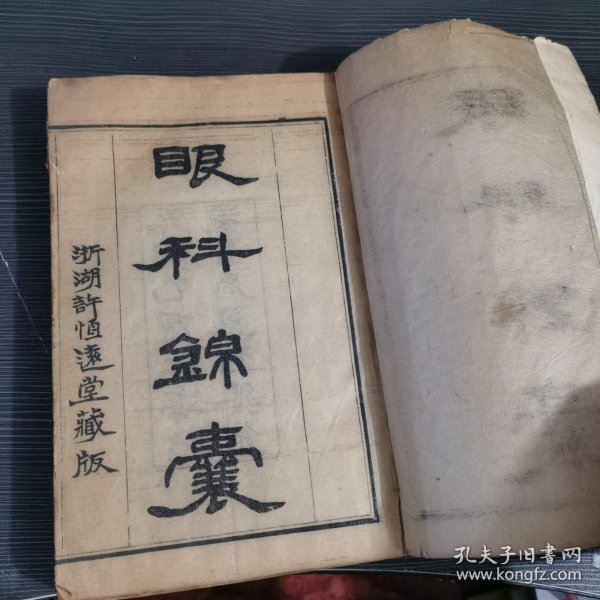 眼科錦囊
浙湖許恒遠堂藏版
孔夫子旧书网
www.kongfz.com